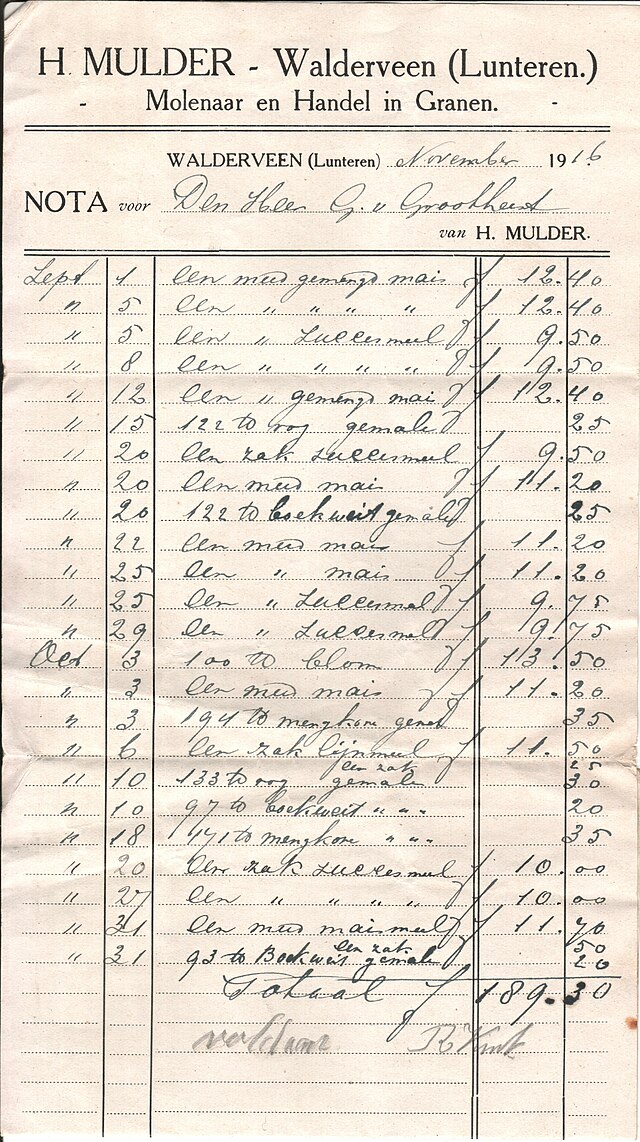 H. MULDER - Walderveen (Lunteren.)
- Molenaar en Handel in Granen. -
WALDERVEEN (Lunteren) November 1916
NOTA voor Den Heer G. v Grootheest
van H. MULDER.
Sept 1 Een mud gemengd mais f 12.40
" 5 Een " " " " f 12.40
" 5 Een " Succesmeel f 9.50
" 8 Een " " " " f 9.50
" 12 Een " gemengd mais f 12.40
" 15 122 to rog gemale 25
" 20 Een zak succesmeel f 9.50
" 20 Een mud mais f 11.20
" 20 122 to boekweit gemale 25
" 22 Een mud mais f 11.20
" 25 Een " mais f 11.20
" 25 Een " Succesmeel f 9.75
" 29 Een " Succesmeel f 9.75
Oct 3 100 to blom f 13.50
" 3 Een mud mais f 11.20
" 3 194 to mengkore 35
" 6 Een zak lijnmeel f 11.50
Een zak 25
" 10 133 to rog gemale 30
" 10 97 to boekweit " " 20
" 18 171 to mengkore " " 35
" 20 Een zak succesmeel f 10.00
" 27 Een " " " " f 10.00
" 31 Een mud maismeel f 11.70
Een zak 50
" 31 93 to Boekweit gemale 20
Totaal f 189.30
voldaan